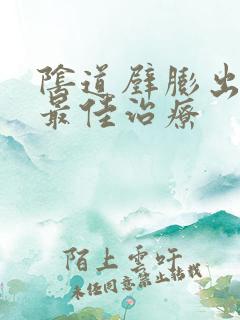 陰道壁膨出
最佳治療
陌上雲吁
未经同意禁止转载